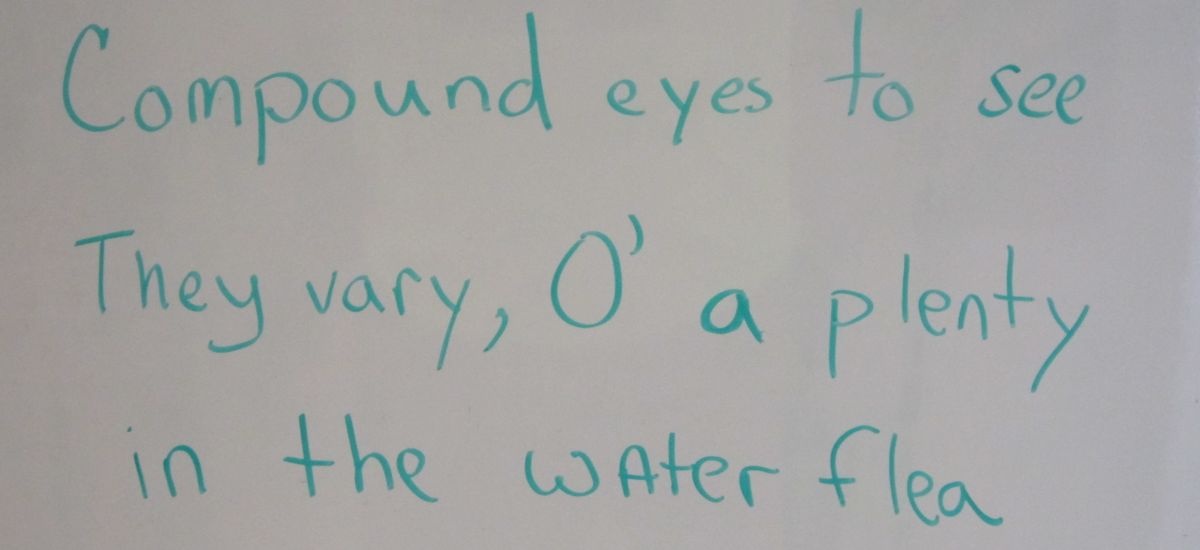 Compound eyes to see
They vary, O' a plenty
in the wAter flea